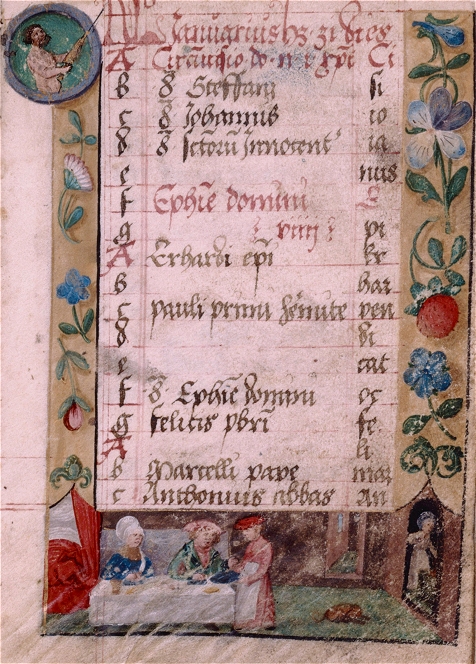 Januarius hʒ xxxi dies
A Circūcisio do n r xp̄i Ci
b 8 Steffani si
c 8 Johannis io
d 8 sctorū Innocent ia
e nus
f Ephīe domini E
g pi
A Erhardi ep̄i kr
b har
c pauli primi hēmite ven
d di
e cat
f 8 Ephīe domini oc
g felicis pbrī fe
A li
b Marcelli pape mar
c Anthonius abbas An